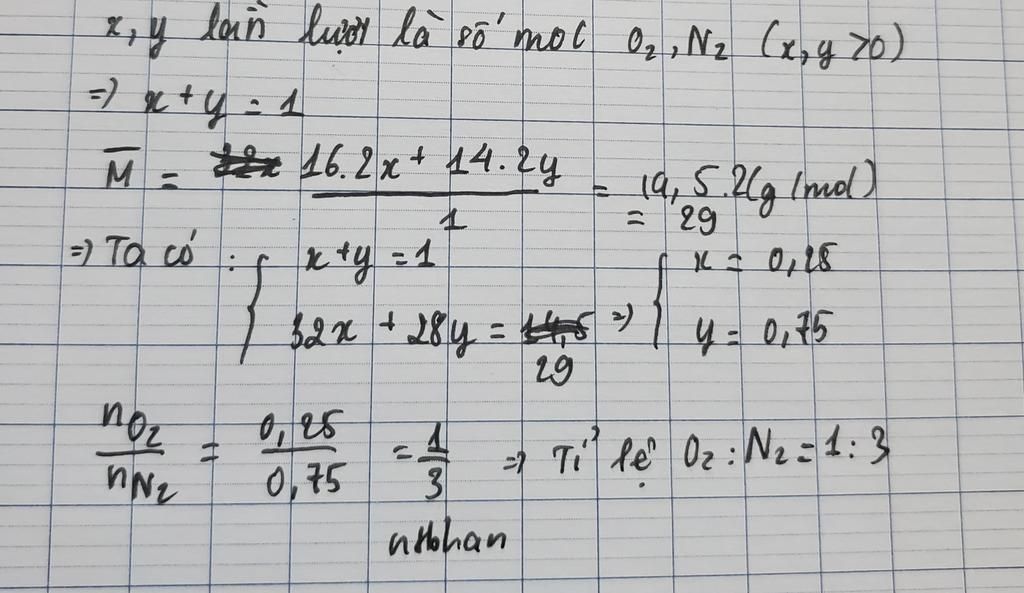 x, y lần lượt là số mol O₂, N₂ (x, y > 0)
=> x + y = 1
M̅ = 16.2x + 14.2y / 1 = 14,5.2 (g/mol)
= 29
=> Ta có : { x + y = 1 { x = 0,25
32x + 28y = 29 => y = 0,75
nO₂ / nN₂ = 0,25 / 0,75 = 1/3 => Tỉ lệ O₂ : N₂ = 1 : 3